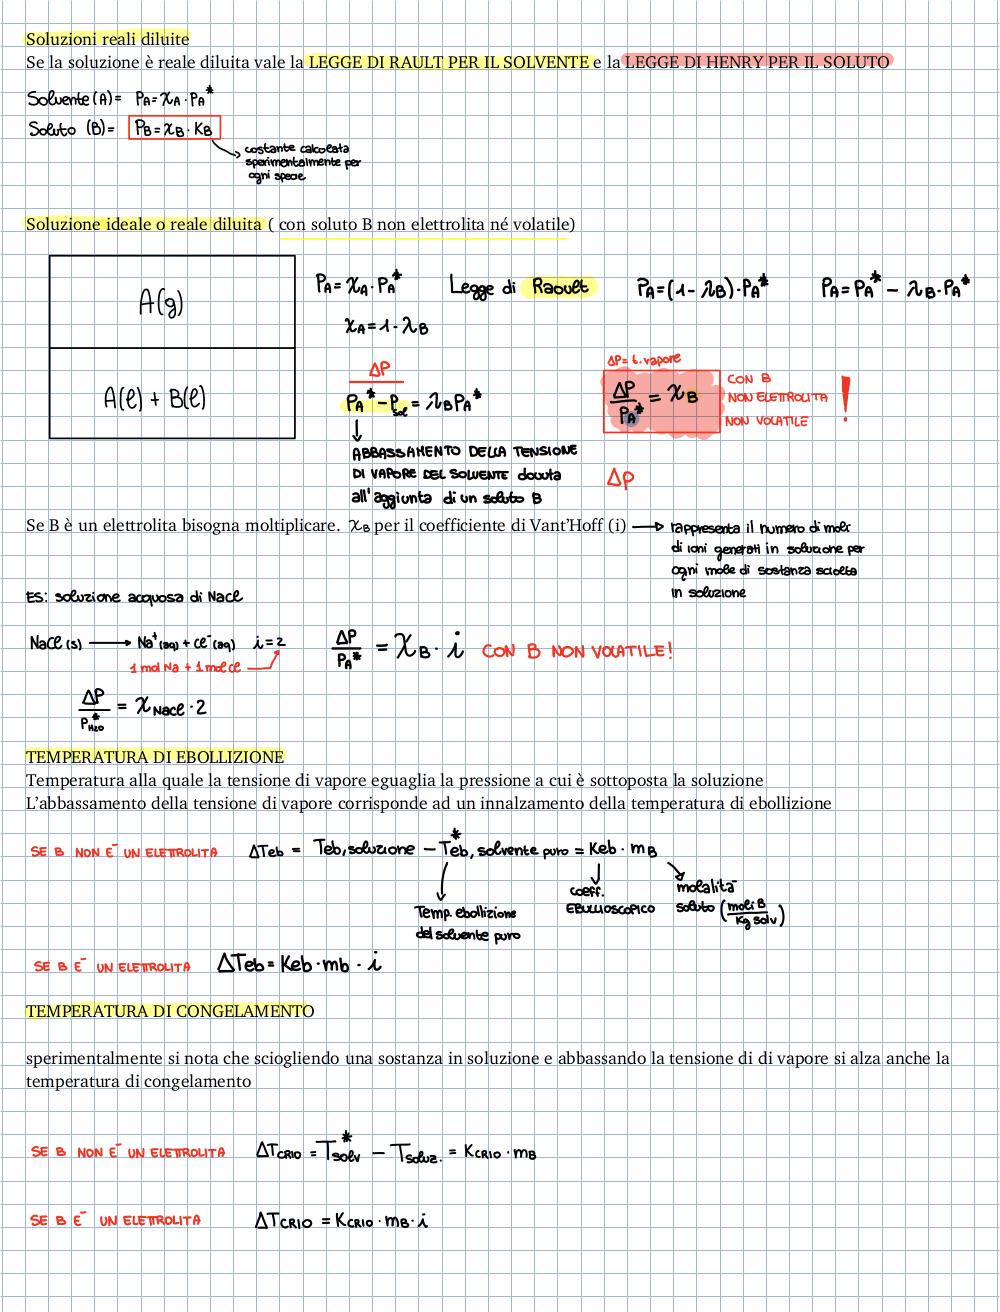 Soluzioni reali diluite
Se la soluzione è reale diluita vale la LEGGE DI RAULT PER IL SOLVENTE e la LEGGE DI HENRY PER IL SOLUTO
Solvente (A) = PA = χA · PA*
Soluto (B) = PB = χB · KB
costante calcolata
sperimentalmente per
ogni specie
Soluzione ideale o reale diluita ( con soluto B non elettrolita né volatile)
A(g)
A(l) + B(l)
PA = χA · PA* Legge di Raoult PA = (1 - χB) · PA* PA = PA* - χB · PA*
χA = 1 - χB
ΔP
PA* - Psol = χB PA*
ABBASSAMENTO DELLA TENSIONE
DI VAPORE DEL SOLVENTE dovuta
all'aggiunta di un soluto B
ΔP = t. vapore
ΔP/PA* = χB
CON B
NON ELETTROLITA
NON VOLATILE
!
ΔP
Se B è un elettrolita bisogna moltiplicare. χB per il coefficiente di Vant'Hoff (i)
rappresenta il numero di moli
di ioni generati in soluzione per
ogni mole di sostanza sciolta
in soluzione
ES: soluzione acquosa di NaCl
NaCl (s) → Na⁺(aq) + Cl⁻(aq) i = 2
1 mol Na + 1 mol Cl
ΔP/PA* = χB · i CON B NON VOLATILE!
ΔP/P*H2O = χNaCl · 2
TEMPERATURA DI EBOLLIZIONE
Temperatura alla quale la tensione di vapore eguaglia la pressione a cui è sottoposta la soluzione
L'abbassamento della tensione di vapore corrisponde ad un innalzamento della temperatura di ebollizione
SE B NON E' UN ELETTROLITA ΔTeb = Teb, soluzione - T*eb, solvente puro = Keb · mB
Temp. ebollizione
del solvente puro
coeff.
EBULLIOSCOPICO
molalità
soluto (moli B/Kg solv)
SE B E' UN ELETTROLITA ΔTeb = Keb · mb · i
TEMPERATURA DI CONGELAMENTO
sperimentalmente si nota che sciogliendo una sostanza in soluzione e abbassando la tensione di di vapore si alza anche la
temperatura di congelamento
SE B NON E' UN ELETTROLITA ΔTCRIO = T*solv - Tsoluz. = KCRIO · mB
SE B E' UN ELETTROLITA ΔTCRIO = KCRIO · mB · i